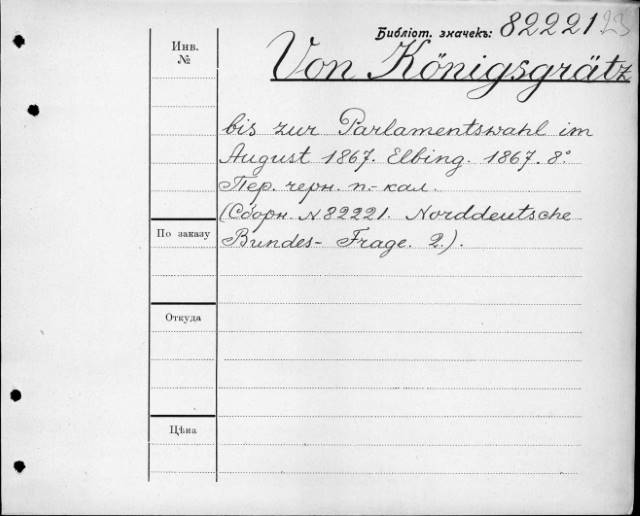 Инв.
№
Библіот. значекъ: 82221 23
Von Königsgrätz
bis zur Parlamentswahl im
August 1867. Elbing. 1867. 8°
Пер. черн. п.-кал.
(Сборн. N 82221. Norddeutsche
По заказу
Bundes- Frage. 2.).
Откуда
Цѣна